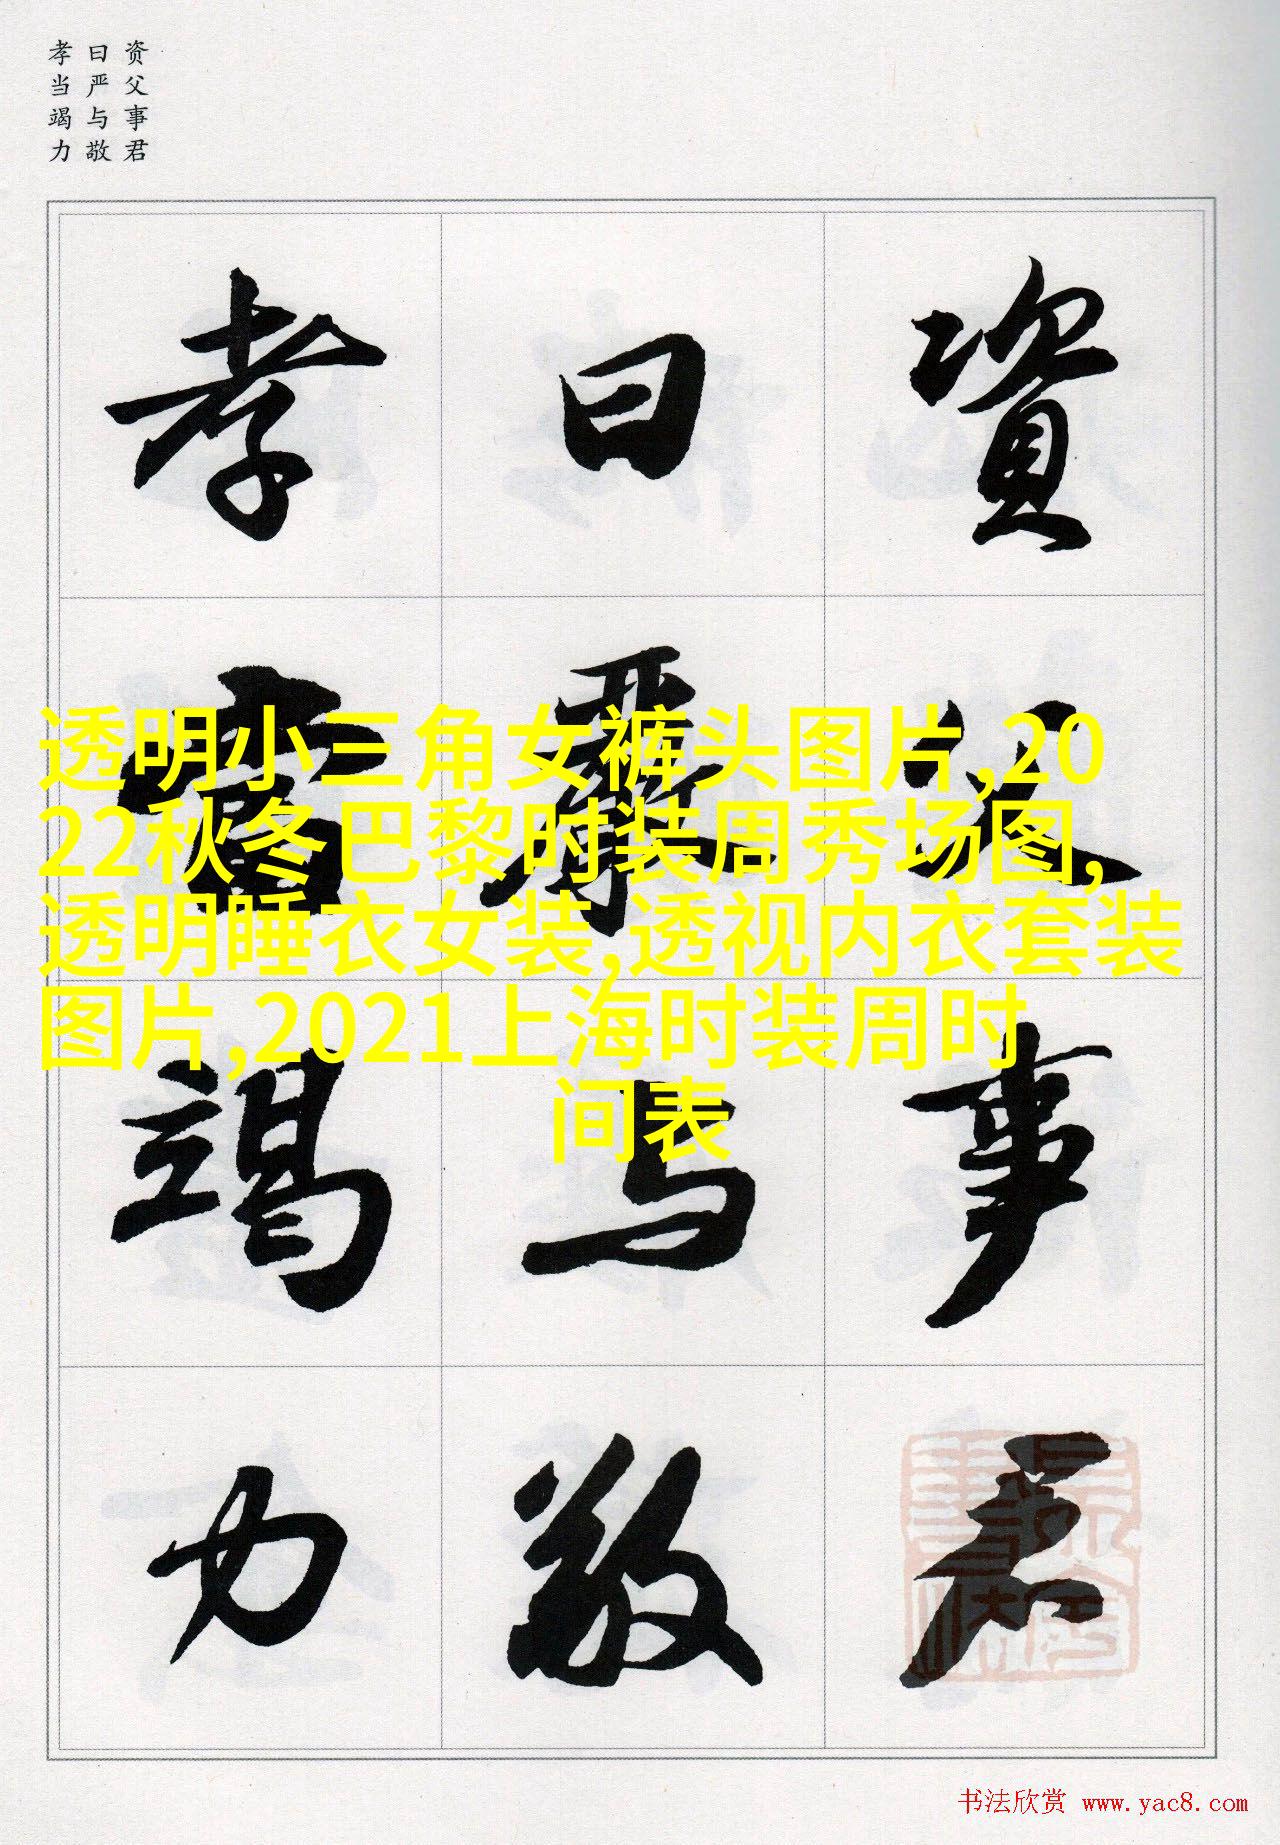 资父事君
曰严与敬
孝当竭力
資父事君
曰嚴与敬
孝當竭力
透明小三角女裤头图片,20
22秋冬巴黎时装周秀场图,
透明睡衣女装,透视内衣套装
图片,2021上海时装周时
间表
书法欣赏 www.yac8.com